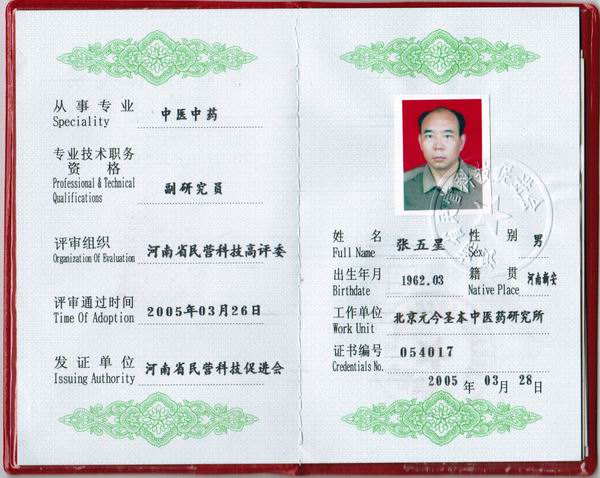 从事专业 中医中药
Speciality
专业技术职务
资格
Professional & Technical
Qualifications 副研究员
评审组织 河南省民营科技高评委
Organization Of Evaluation
评审通过时间 2005年03月26日
Time Of Adoption
发证单位 河南省民营科技促进会
Issuing Authority
姓名 张五星 性别 男
Full Name Sex
出生年月 1962.03 籍贯 河南新安
Birthdate Native Place
工作单位 北京元今圣本中医药研究所
Work Unit
证书编号 054017
Credentials No.
2005年03月28日